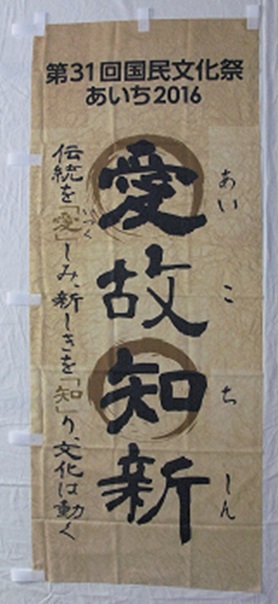 第31回国民文化祭
あいち2016
あい こ ち しん
愛故知新
伝統を「愛」しみ、新しきを「知」り、文化は動く
いつく